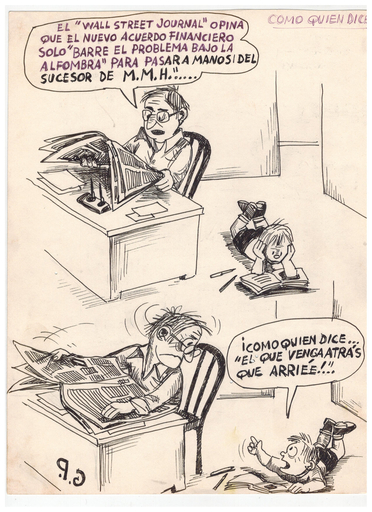 COMO QUIEN DICE
EL "WALL STREET JOURNAL" OPINA
QUE EL NUEVO ACUERDO FINANCIERO
SOLO "BARRE EL PROBLEMA BAJO LA
ALFOMBRA" PARA PASARA MANOS DEL
SUCESOR DE M.M.H.".....
¡COMO QUIEN DICE...
"EL QUE VENGA ATRÁS
QUE ARRIÉE.!"..